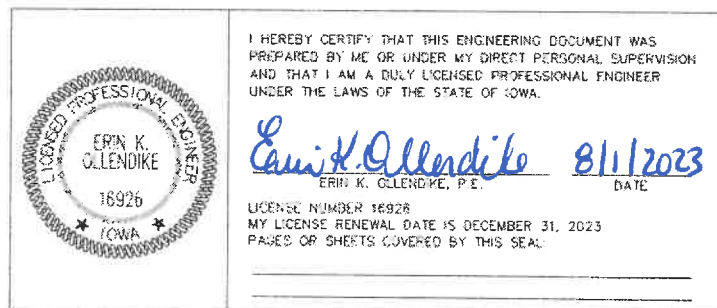 LICENSED PROFESSIONAL ENGINEER
ERIN K.
OLLENDIKE
16926
IOWA
I HEREBY CERTIFY THAT THIS ENGINEERING DOCUMENT WAS
PREPARED BY ME OR UNDER MY DIRECT PERSONAL SUPERVISION
AND THAT I AM A DULY LICENSED PROFESSIONAL ENGINEER
UNDER THE LAWS OF THE STATE OF IOWA.
Erin K. Ollendike 8/1/2023
ERIN K. OLLENDIKE, P.E. DATE
LICENSE NUMBER 16926
MY LICENSE RENEWAL DATE IS DECEMBER 31, 2023
PAGES OR SHEETS COVERED BY THIS SEAL: